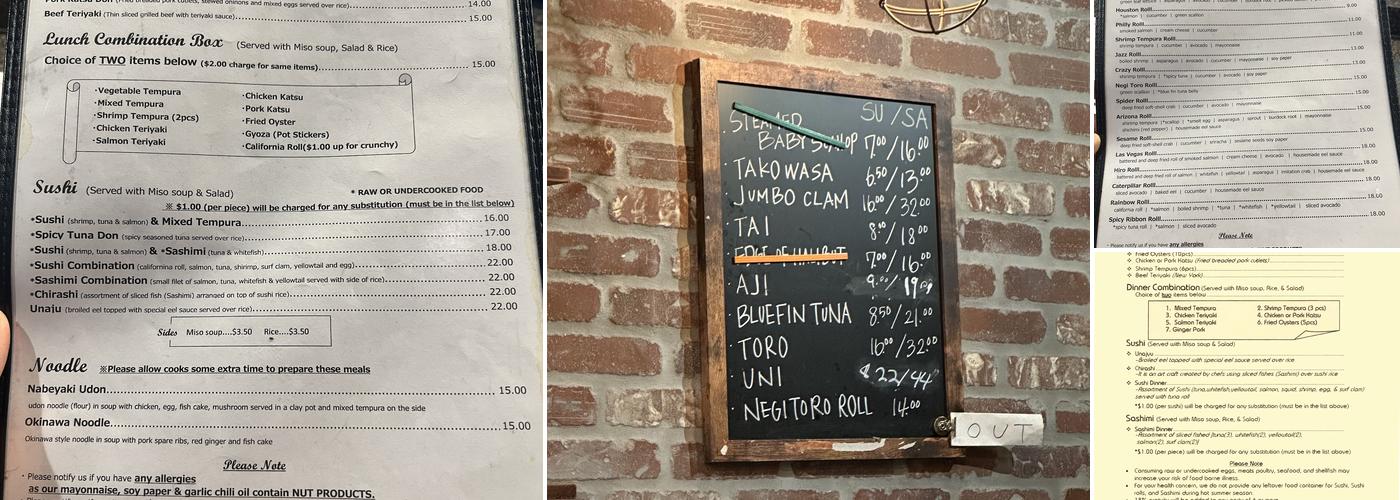 Beef Teriyaki (Thin sliced grilled beef with teriyaki sauce) 15.00
Lunch Combination Box (Served with Miso soup, Salad & Rice)
Choice of TWO items below ($2.00 charge for same items) 15.00
·Vegetable Tempura
·Mixed Tempura
·Shrimp Tempura (2pcs)
·Chicken Teriyaki
·Salmon Teriyaki
·Chicken Katsu
·Pork Katsu
·Fried Oyster
·Gyoza (Pot Stickers)
·California Roll($1.00 up for crunchy)
Sushi (Served with Miso soup & Salad)
• RAW OR UNDERCOOKED FOOD
※ $1.00 (per piece) will be charged for any substitution (must be in the list below)
•Sushi (shrimp, tuna & salmon) & Mixed Tempura 16.00
•Spicy Tuna Don (spicy seasoned tuna served over rice) 17.00
•Sushi (shrimp, tuna & salmon) & •Sashimi (tuna & whitefish) 18.00
•Sushi Combination (california roll, salmon, tuna, shrimp, surf clam, yellowtail and egg) 22.00
•Sashimi Combination (small filet of salmon, tuna, whitefish & yellowtail served with side of rice) 22.00
•Chirashi (assortment of sliced fish (Sashimi) arranged on top of sushi rice) 22.00
Unaju (broiled eel topped with special eel sauce served over rice) 22.00
Sides Miso soup....$3.50 Rice....$3.50
Noodle ※Please allow cooks some extra time to prepare these meals
Nabeyaki Udon 15.00
udon noodle (flour) in soup with chicken, egg, fish cake, mushroom served in a clay pot and mixed tempura on the side
Okinawa Noodle 15.00
Okinawa style noodle in soup with pork spare ribs, red ginger and fish cake
Please Note
· Please notify us if you have any allergies
as our mayonnaise, soy paper & garlic chili oil contain NUT PRODUCTS.
SU/SA
· STEAMED
BABY 7.00/16.00
· TAKOWASA 6.50/13.00
· JUMBO CLAM 16.00/32.00
· TAI 8.00/18.00
EDGE OF HALIBUT 7.00/16.00
· AJI 9.00/19.00
· BLUEFIN TUNA 8.50/21.00
· TORO 16.00/32.00
· UNI $22/44
· NEGITORO ROLL 14.00
OUT
Houston Roll 9.00
*salmon | cucumber | green scallion
Philly Roll 11.00
smoked salmon | cream cheese | cucumber
Shrimp Tempura Roll 11.00
shrimp tempura | cucumber | avocado | mayonnaise
Jazz Roll 13.00
boiled shrimp | asparagus | avocado | cucumber | mayonnaise | soy paper
Crazy Roll 13.00
shrimp tempura | *spicy tuna | cucumber | avocado | soy paper
Negi Toro Roll 15.00
green scallion | *blue fin tuna belly
Spider Roll
deep fried soft-shell crab | cucumber | avocado | mayonnaise
Arizona Roll
shrimp tempura | *scallop | *smelt egg | asparagus | sprout | burdock root | mayonnaise
shichimi (red pepper) | housemade eel sauce
Sesame Roll 15.00
deep fried soft-shell crab | cucumber | sriracha | sesame seeds soy paper
Las Vegas Roll 18.00
battered and deep fried roll of smoked salmon | cream cheese | avocado | housemade eel sauce
Hiro Roll 18.00
battered and deep fried roll of salmon | whitefish | yellowtail | asparagus | imitation crab | housemade eel sauce
Caterpillar Roll 18.00
sliced avocado | baked eel | cucumber | housemade eel sauce
Rainbow Roll 18.00
california roll | *salmon | boiled shrimp | *tuna | *whitefish | *yellowtail | sliced avocado
Spicy Ribbon Roll 18.00
*spicy tuna roll | *salmon | sliced avocado
Please Note
* Please notify us if you have any allergies
❖ Fried Oysters (10pcs)
❖ Chicken or Pork Katsu (Fried breaded pork cutlets)
❖ Shrimp Tempura (6pcs)
❖ Beef Teriyaki (New York)
Dinner Combination (Served with Miso soup, Rice, & Salad)
Choice of two items below
1. Mixed Tempura
2. Shrimp Tempura (3 pcs)
3. Chicken Teriyaki
4. Chicken or Pork Katsu
5. Salmon Teriyaki
6. Fried Oysters (5pcs)
7. Ginger Pork
Sushi (Served with Miso soup & Salad)
❖ Unajyu
-Broiled eel topped with special eel sauce served over rice
❖ Chirashi
-It is an art craft created by chefs using sliced fishes (Sashimi) over sushi rice
❖ Sushi Dinner
-Assortment of Sushi (tuna,whitefish,yellowtail, salmon, squid, shrimp, egg, & surf clam)
served with tuna roll
*$1.00 (per sushi) will be charged for any substitution (must be in the list above)
Sashimi (Served with Miso soup, Rice, & Salad)
❖ Sashimi Dinner
-Assortment of sliced fished (tuna(3), whitefish(2), yellowtail(2),
salmon(2), surf clam(2))
*$1.00 (per piece) will be charged for any substitution (must be in the list above)
Please Note
• Consuming raw or undercooked eggs, meats poultry, seafood, and shellfish may
increase your risk of food borne illness.
• For your health concern, we do not provide any leftover food container for Sushi, Sushi
rolls, and Sashimi during hot summer season.